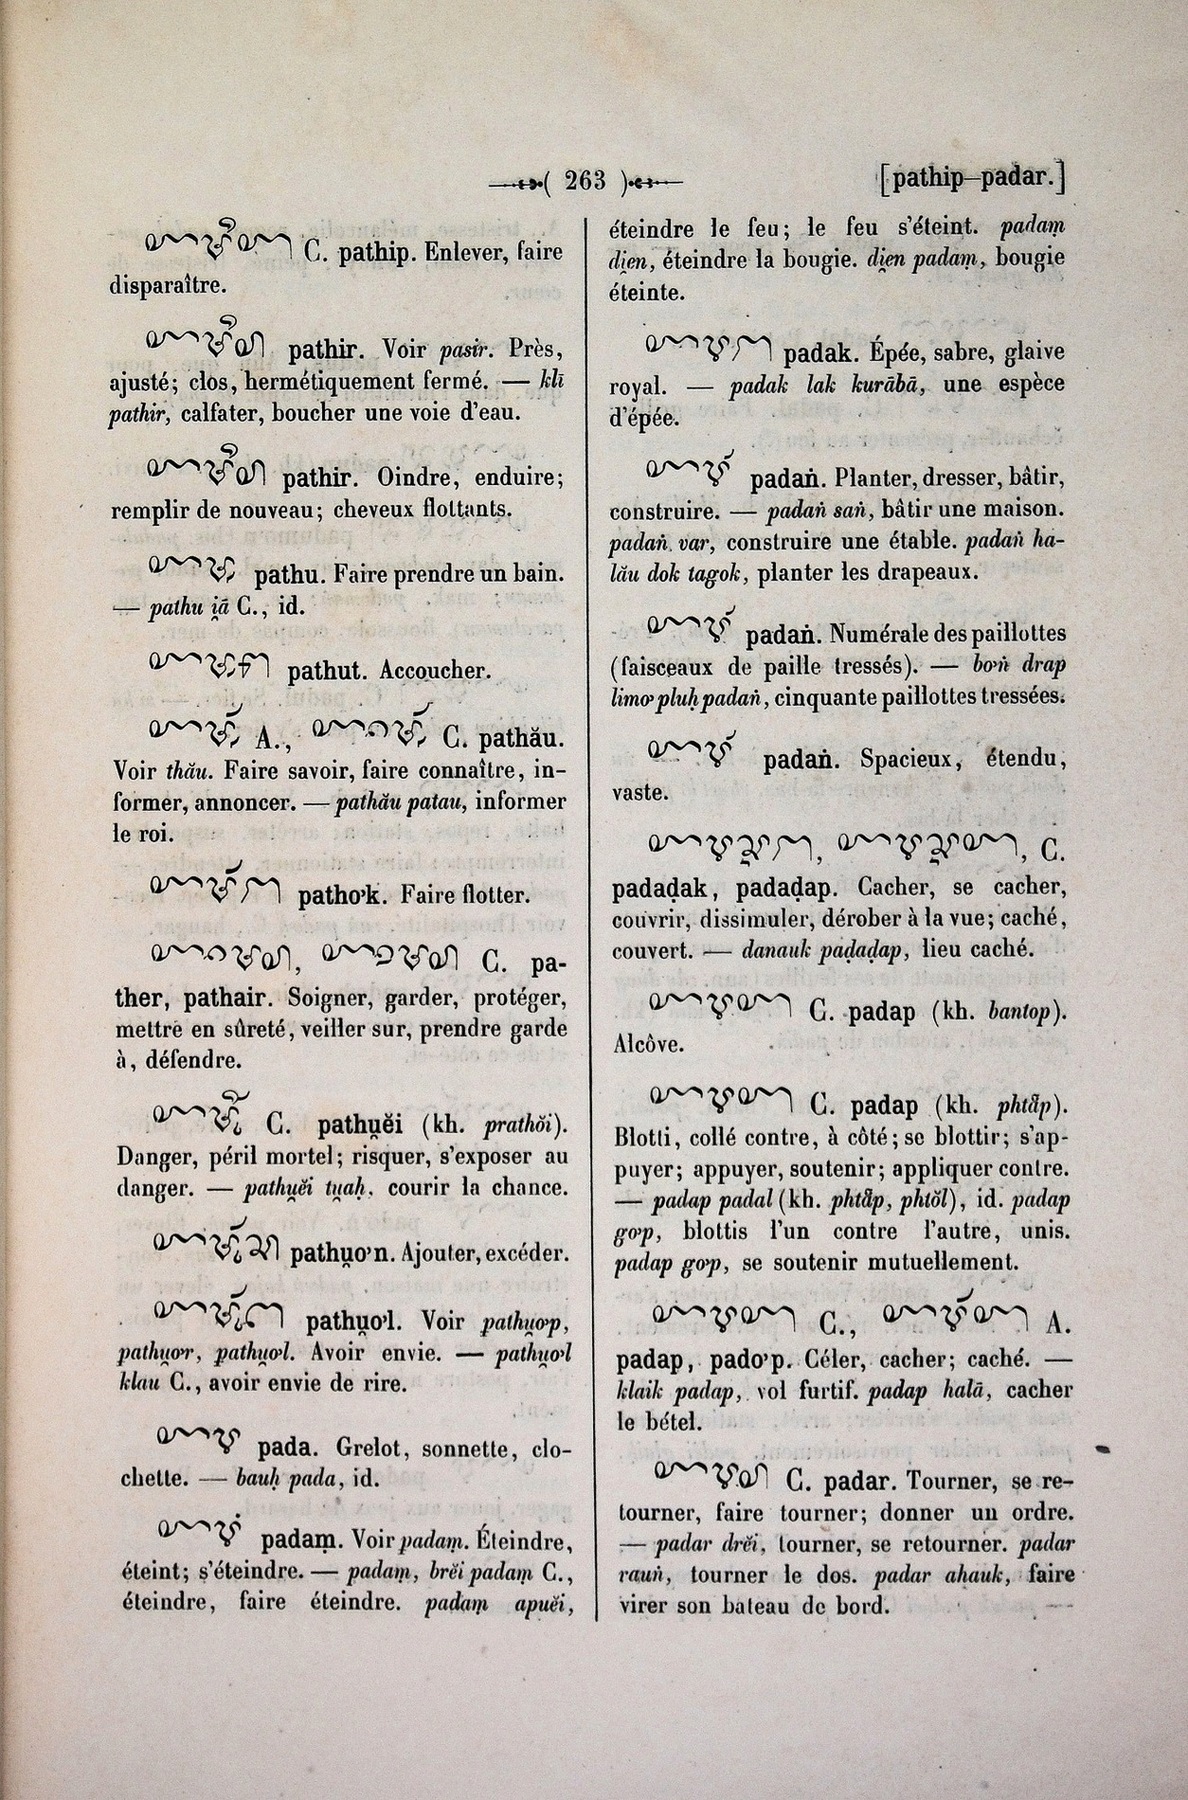 ( 263 )
[pathip–padar.]
C. pathip. Enlever, faire
disparaître.
pathir. Voir pasir. Près,
ajusté; clos, hermétiquement fermé. — klī
pathir, calfater, boucher une voie d'eau.
pathir. Oindre, enduire;
remplir de nouveau; cheveux flottants.
pathu. Faire prendre un bain.
— pathu i̯ā C., id.
pathut. Accoucher.
A., C. pathău.
Voir thău. Faire savoir, faire connaître, in-
former, annoncer. — pathău patau, informer
le roi.
patho'k. Faire flotter.
, C. pa-
ther, pathair. Soigner, garder, protéger,
mettre en sûreté, veiller sur, prendre garde
à, défendre.
C. pathu̯ĕi (kh. prathŏi).
Danger, péril mortel; risquer, s'exposer au
danger. — pathu̯ĕi tu̯aḥ, courir la chance.
pathu̯o'n. Ajouter, excéder.
pathu̯o'l. Voir pathu̯o'p,
pathu̯o'r, pathu̯o'l. Avoir envie. — pathu̯o'l
klau C., avoir envie de rire.
pada. Grelot, sonnette, clo-
chette. — bauḥ pada, id.
padaṃ. Voir padaṃ. Éteindre,
éteint; s'éteindre. — padaṃ, brĕi padaṃ C.,
éteindre, faire éteindre. padaṃ apuĕi,
éteindre le feu; le feu s'éteint. padaṃ
di̯en, éteindre la bougie. di̯en padaṃ, bougie
éteinte.
padak. Épée, sabre, glaive
royal. — padak lak kurābā, une espèce
d'épée.
padaṅ. Planter, dresser, bâtir,
construire. — padaṅ saṅ, bâtir une maison.
padaṅ var, construire une étable. padaṅ ha-
lău dok tagok, planter les drapeaux.
padaṅ. Numérale des paillottes
(faisceaux de paille tressés). — bo'ṅ drap
limo' pluḥ padaṅ, cinquante paillottes tressées.
padaṅ. Spacieux, étendu,
vaste.
, , C.
padaḍak, padaḍap. Cacher, se cacher,
couvrir, dissimuler, dérober à la vue; caché,
couvert. — danauk paḍaḍap, lieu caché.
C. padap (kh. bantop).
Alcôve.
C. padap (kh. phtāp̆).
Blotti, collé contre, à côté; se blottir; s'ap-
puyer; appuyer, soutenir; appliquer contre.
— padap padal (kh. phtāp̆, phtŏl), id. padap
go'p, blottis l'un contre l'autre, unis.
padap go'p, se soutenir mutuellement.
C., A.
padap, pado'p. Céler, cacher; caché. —
klaik padap, vol furtif. padap halā, cacher
le bétel.
C. padar. Tourner, se re-
tourner, faire tourner; donner un ordre.
— padar drĕi, tourner, se retourner. padar
rauṅ, tourner le dos. padar ahauk, faire
virer son bateau de bord.